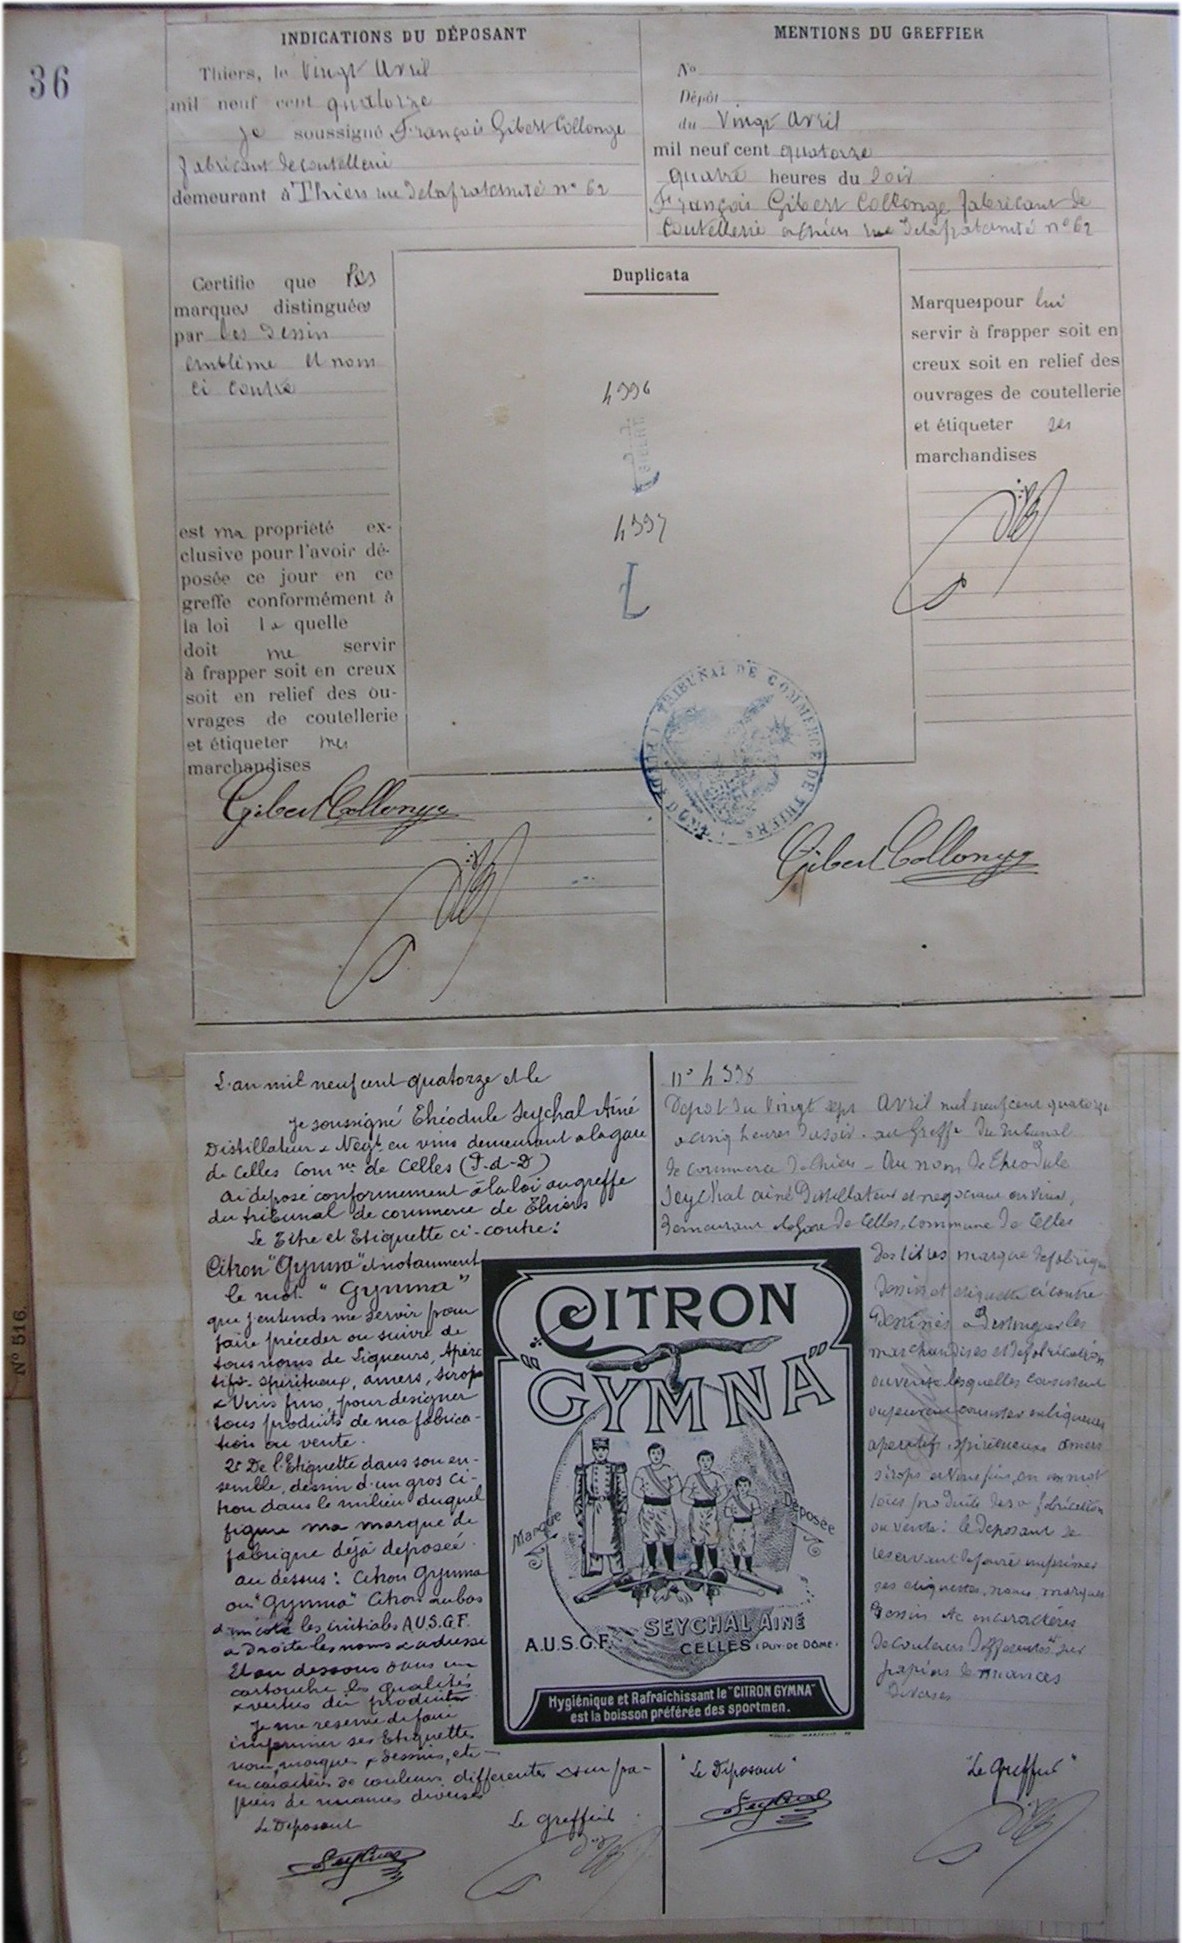 36
INDICATIONS DU DÉPOSANT
Thiers, le vingt avril
mil neuf cent quatorze
je soussigné François Gibert Collonge
fabricant de coutellerie
demeurant à Thiers rue de la fraternité n° 62
Certifie que les
marques distinguées
par les dessin
emblème et nom
ci contre
est ma propriété ex-
clusive pour l'avoir dé-
posée ce jour en ce
greffe conformément à
la loi laquelle
doit me servir
à frapper soit en creux
soit en relief des ou-
vrages de coutellerie
et étiqueter mes
marchandises
Gibert Collonge
Duplicata
4996
GIBERT
4997
TRIBUNAL DE COMMERCE DE THIERS
MENTIONS DU GREFFIER
No
Dépôt
du vingt avril
mil neuf cent quatorze
quatre heures du soir
François Gibert Collonge fabricant de
coutellerie à Thiers rue de la fraternité n° 62
Marques pour lui
servir à frapper soit en
creux soit en relief des
ouvrages de coutellerie
et étiqueter ses
marchandises
Gibert Collonge
N° 516.
L'an mil neuf cent quatorze et le
je soussigné Théodule Seychal Ainé
Distillateur & Négt en vins demeurant a la gare
de Celles Comne de Celles (P-d-D)
ai déposé conformement à la loi au greffe
du tribunal de commerce de Thiers
Le Titre et Etiquette ci-contre:
Citron "Gymna" et notamment
le mot "Gymna"
que j'entends me servir pour
faire précéder ou suivre de
tous noms de Liqueurs, Apéri
tifs spiritueux, amers, sirops
& Vins fins, pour désigner
tous produits de ma fabrica-
tion ou vente.
2° De l'Etiquette dans son en-
semble, dessin d'un gros ci-
tron dans le milieu duquel
figure ma marque de
fabrique déjà déposée.
au dessus: Citron Gymna
ou "Gymna" Citron au bas
d'un coté les initiales A.U.S.G.F.
a Droite les noms & adresse
Et au dessous dans un
cartouche les qualités
& vertus du produit
Je me reserve de faire
imprimer ses Etiquettes
nom, marques & dessins, etc
en caractères de couleurs differentes & sur pa-
piers de nuances diverses
Le Déposant
Seychal
Le Greffier
n° 4998
Dépot du vingt sept Avril mil neuf cent quatorze
a cinq heures du soir - au Greffe du Tribunal
de commerce de Thiers - Au nom de Théodule
Seychal ainé Distillateur et negociant en vins,
demeurant à la gare de Celles, commune de Celles
des titres marque de fabrique
dessin et etiquette ci contre
Destinés a Distinguer les
marchandises de fabrication
ou vente lesquelles consistent
ou peuvent consister en liqueurs
aperitifs, spiritueux amers
sirops et vins fins, en un mot
tous produits de sa fabrication
ou vente: le deposant se
reservant de faire imprimer
ses etiquettes, noms, marques
Dessin etc en caractères
de couleurs differentes sur
papiers de nuances
diverses
CITRON
"GYMNA"
Marque Déposée
SEYCHAL AINÉ
A.U.S.G.F. CELLES (PUY-DE-DÔME)
Hygiénique et Rafraichissant le "CITRON GYMNA"
est la boisson préférée des sportmen.
"Le Déposant"
Seychal
"Le Greffier"